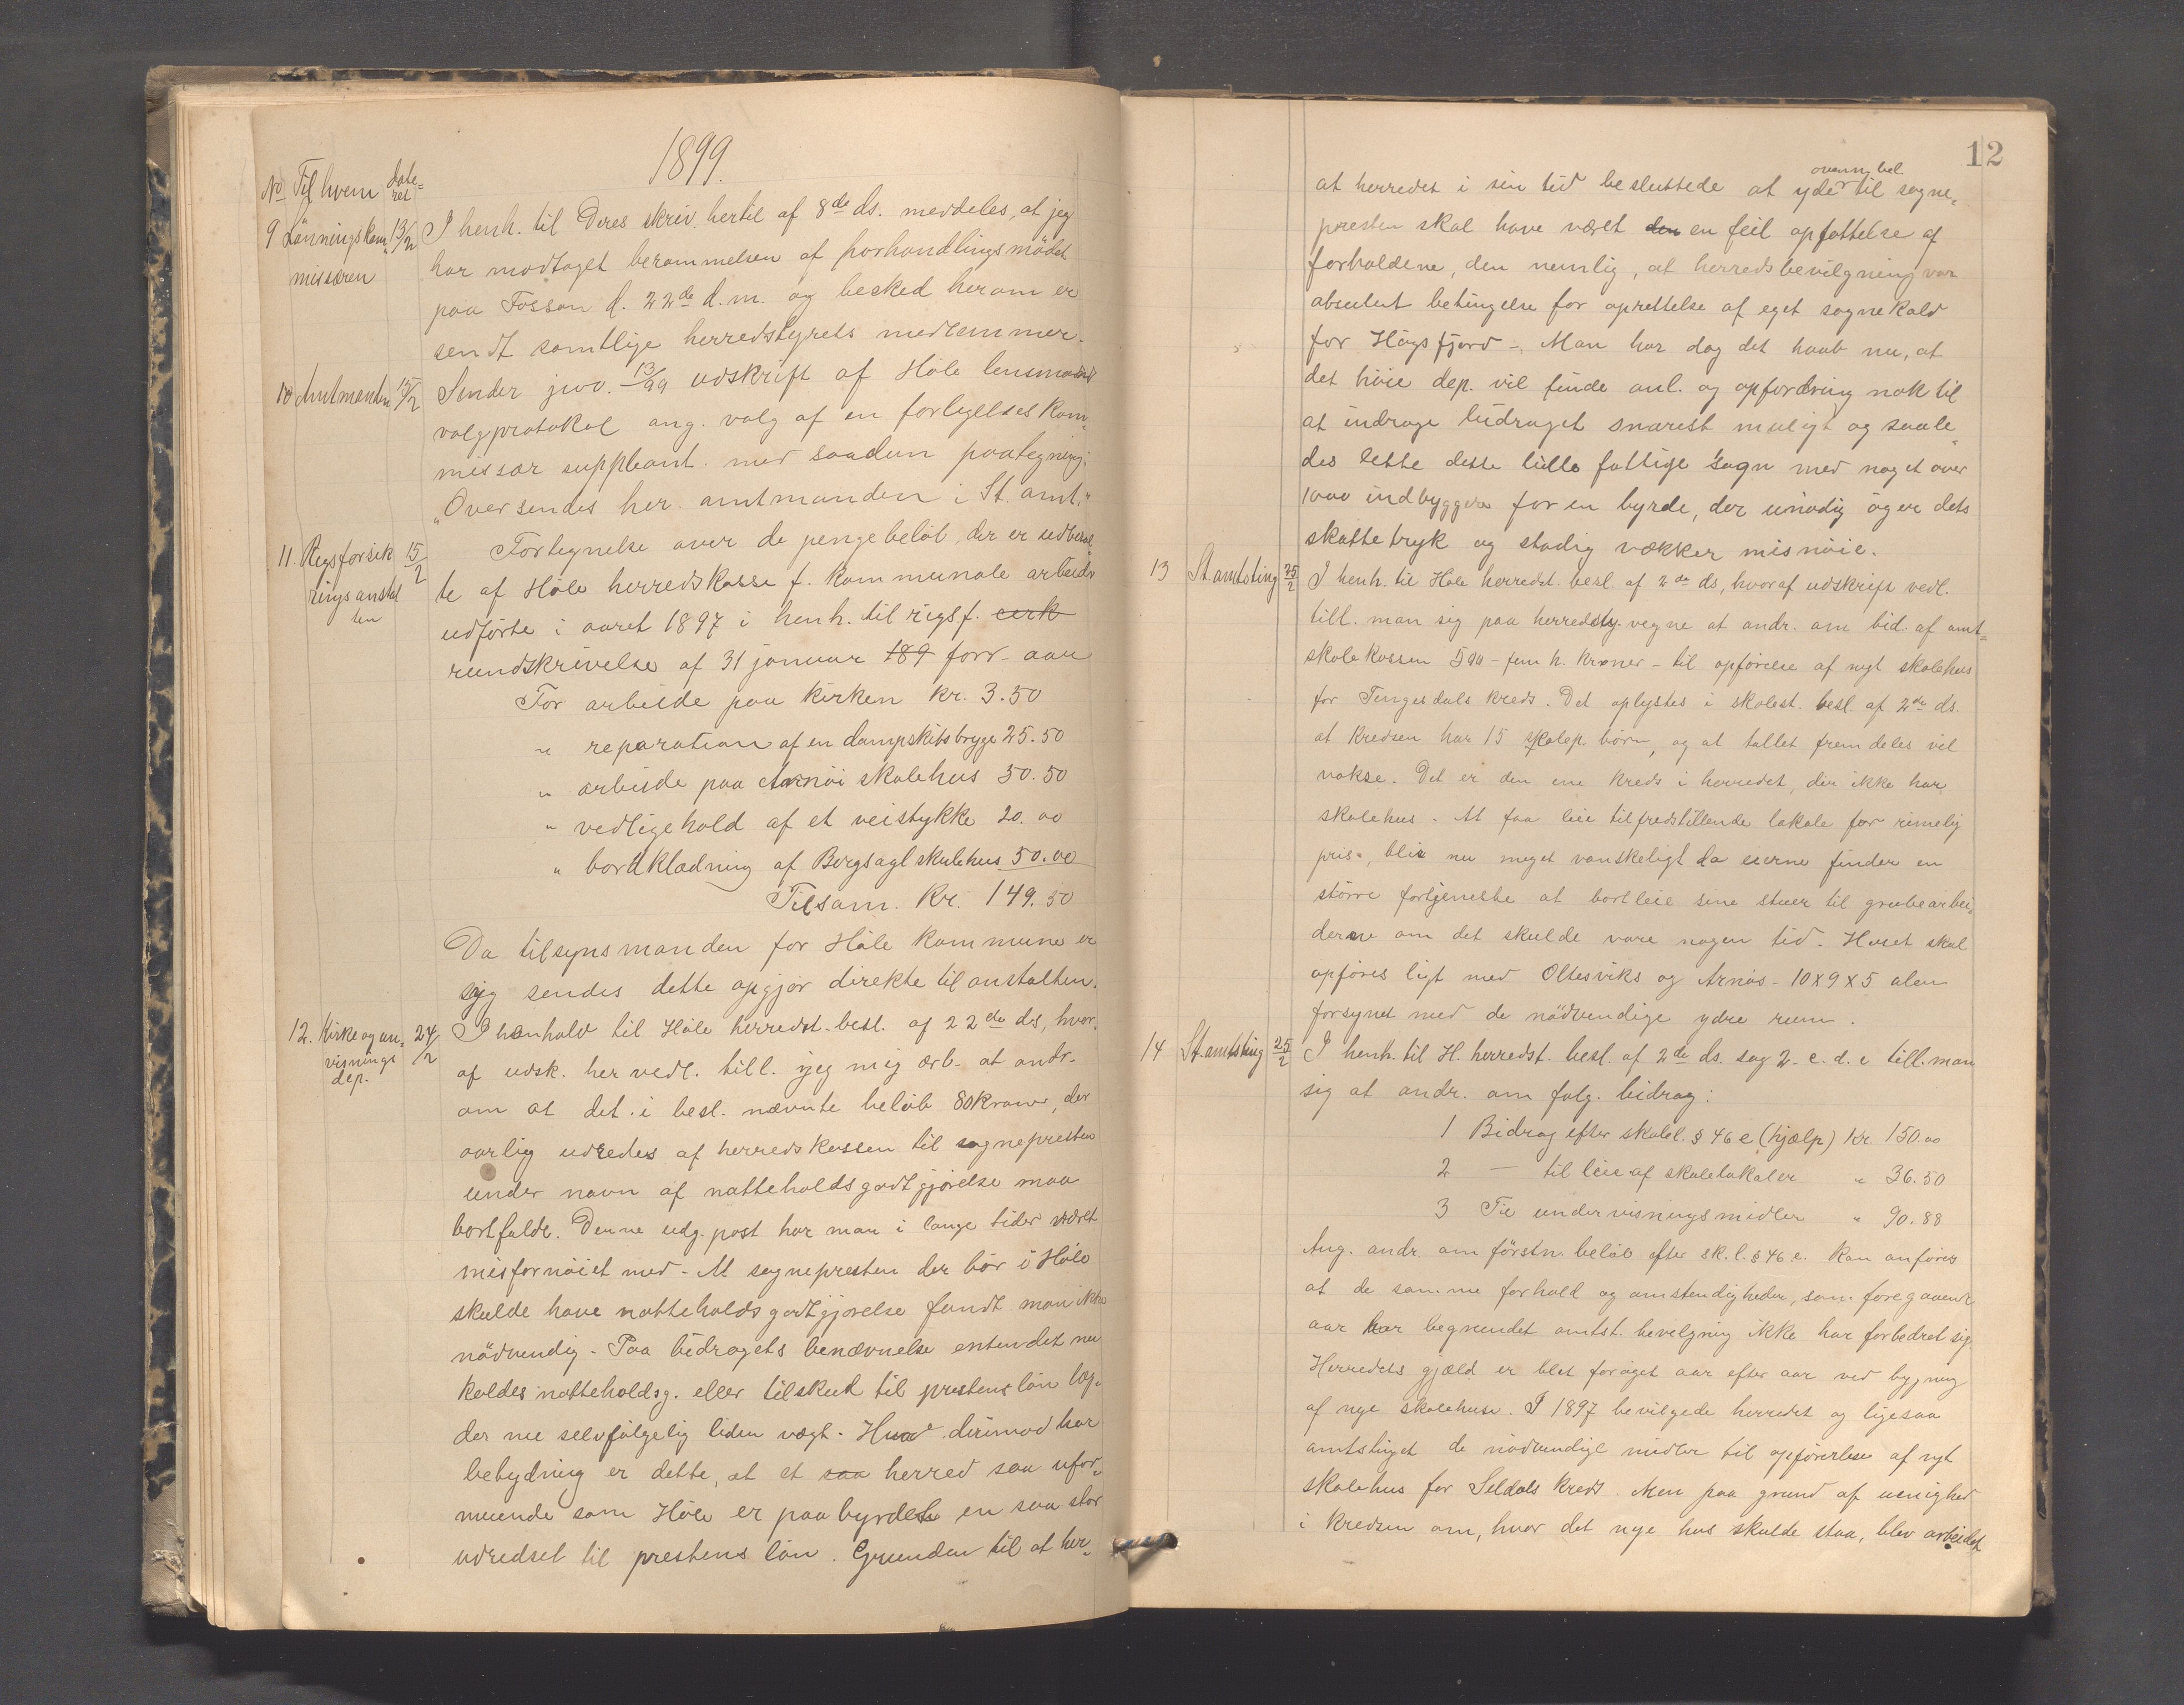 1899.
No Til hvem date=
ret
9 Lönningskom= 13/2 I henh. til Deres skriv. hertil af 8de ds. meddeles, at jeg
missæren har modtaget berammelsen af forhandlingsmödet
paa Fossan d. 22de d.m. og besked herom er
sendt samtlige herredstyrets medlemmer.
10 Amtmanden 15/2 Sender jno. 13/99 udskrift af Höle lensmands
valgprotokol ang. valg af en forligelseskom=
missær suppleant med saadan paategning:
"Oversendes hr. amtmanden i St. amt."
11. Rigsforsik 15/2 Fortegnelse over de pengebelöb, der er udbetal
ringsanstal te af Höle herredskasse f. kommunale arbeider
ten udförte i aaret 1897 i henh. til rigsf. cirk
rundskrivelse af 31 januar 189 forr. aar
For arbeide paa kirken kr. 3.50
" reparation af en dampskibsbrygge 25.50
" arbeide paa Arnöi skolehus 50.50
" vedligehold af et veistykke 20.00
" bordklædning af Bergsagel skolehus 50.00
Tilsam. Kr. 149.50
Da tilsynsmanden for Höle kommune er
syg sendes dette opgjör direkte til anstalten.
12. Kirke og un= 24/2 I henhold til Höle herredst. besl. af 22de ds, hvor=
visnings af udsk. her vedl. till. jeg mig ærb. at andr.
dep. om at det i besl. nævnte belöb 80 kroner, der
aarlig udredes af herredskassen til sognepresten
under navn af natteholdsgodtgjörelse maa
bortfalde. Denne udg. post har man i lange tider været
misfornöiet med. At sognepresten der bör i Höle
skulde have natteholdsgodtgjörelse fandt man ikke
nödvendig. Paa bidragets benævnelse enten det nu
kaldes natteholdsg. eller tilskud til prestens lön læg=
der nu selvfölgelig liden vægt. Hvad derimod har
betydning er dette, at et saa herred saa ufor=
muende som Höle er paabyrdet en saa stor
udredsel til prestens lön. Grunden til at her=
12
at herredet i sin tid besluttede at yde ovenn. bel. til sogne=
presten skal have været den en feil opfattelse af
forholdene, den nemlig, at herredsbevilgning var
absolut betingelse for oprettelse af eget sognekald
for Högsfjord – Man har dog det haab nu, at
det höie dep. vil finde anl. og opfordring nok til
at inddrage bidraget snarest muligt og saale=
des lette dette lille fattige sogn med noget over
1000 indbyggere for en byrde, der unödig öger dets
skattetryk og stadig vækker misnöie.
13 St. amtsting 25/2 I henh. til Höle herredst. besl. af 2de ds, hvoraf udskrift vedl.
till. man sig paa herredsty. vegne at andr. om bid. af amt=
skolekassen 500 – fem h. kroner – til opförelse af nyt skolehus
for Tengesdals kreds. Det oplystes i skolest. besl. af 2de ds.
at kredsen har 15 skolep. börn, og at tallet fremdeles vil
vokse. Det er den ene kreds i herredet, der ikke har
skolehus. At faa leie tilfredstillende lokale for rimelig
pris, blir nu meget vanskeligt da eierne finder en
större fortjeneste at bortleie sine stuer til grubearbei=
derne om det skulde vare nogen tid. Huset skal
opföres ligt med Oltesviks og Arnös – 10 x 9 x 5 alen
forsynet med de nödvendige ydre rum.
14 St. amtsting 25/2 I henh. til H. herredst. besl. af 2de ds. sag 2. c. d. e till. man
sig at andr. om fölg. bidrag:
1 Bidrag efter skolel. § 46 e (hjælp) Kr. 150.00
2 — til leie af skolelokaler " 36.50
3 Til undervisningsmidler " 90.88
Ang. andr. om förstn. belöb efter sk. l. § 46 e. kan anföres
at de samme forhold og omstendigheder, som foregaaende
aar har begrundet amtst. bevilgning ikke har forbedret sig.
Herredets gjæld er blet foröget aar efter aar ved bygning
af nye skolehuse. I 1897 bevilgede herredet og ligesaa
amtstinget de nödvendige midler til opförelse af nyt
skolehus for Seldals kreds. Men paa grund af uenighed
i kredsen om, hvor det nye hus skulde staa, blev arbeidet